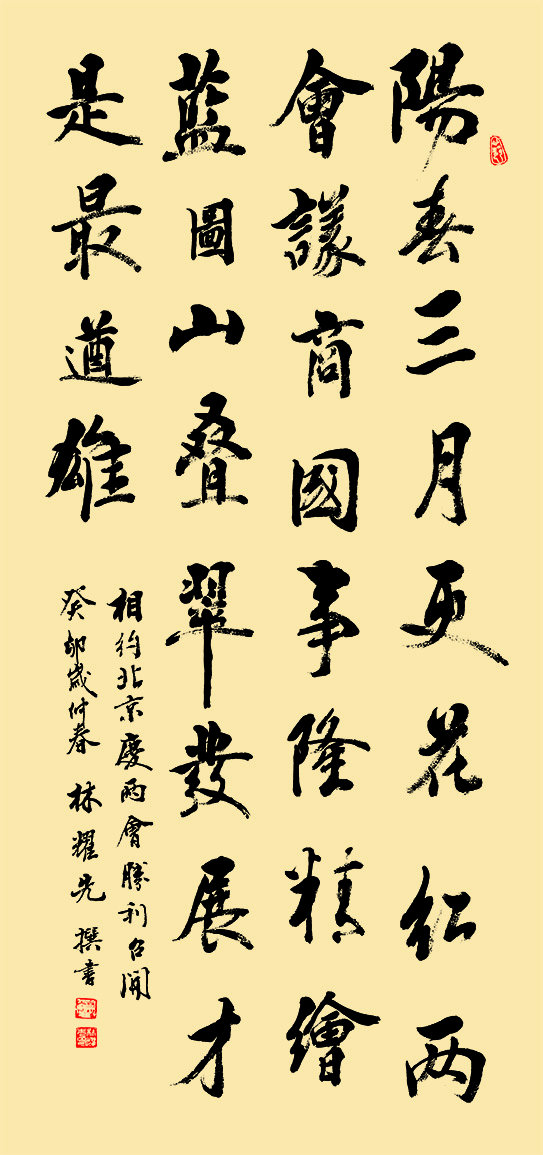 陽春三月更花红两
會議商國事隆精繪
藍圖山叠翠發展才
是最遒雄
相约北京慶两會勝利召開
癸卯歲仲春 林耀先 撰書